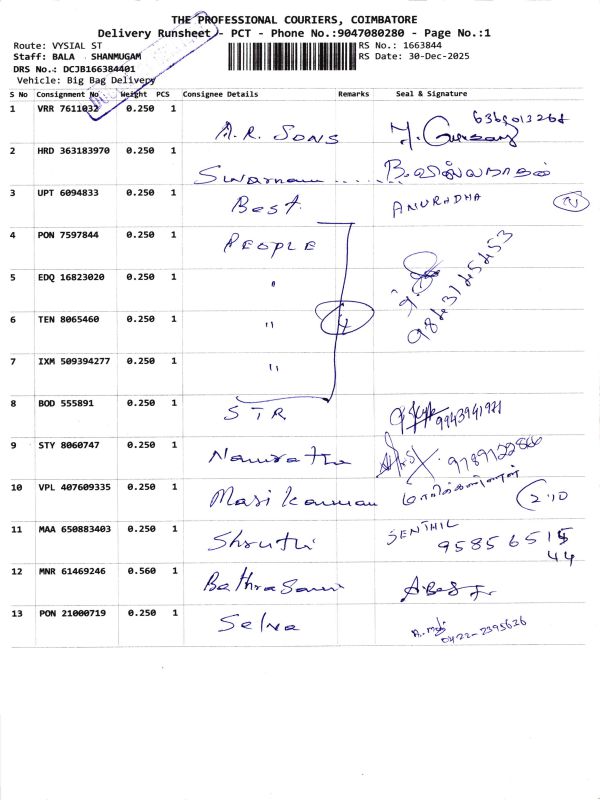 THE PROFESSIONAL COURIERS, COIMBATORE
Delivery Runsheet - PCT - Phone No.:9047080280 - Page No.:1
Route: VYSIAL ST
RS No.: 1663844
Staff: BALA SHANMUGAM
RS Date: 30-Dec-2025
DRS No.: DCJB166384401
Vehicle: Big Bag Delivery
S No Consignment No Weight PCS Consignee Details Remarks Seal & Signature
1 VRR 7611032 0.250 1 A.R. SONS
2 HRD 363183970 0.250 1
3 UPT 6094833 0.250 1 Best. ANURADHA
4 PON 7597844 0.250 1 PEOPLE
9843745453
5 EDQ 16823020 0.250 1 "
6 TEN 8065460 0.250 1 " 4
7 IXM 509394277 0.250 1 "
8 BOD 555891 0.250 1 STR 9943941921
9 STY 8060747 0.250 1 Namratha 9789122866
10 VPL 407609335 0.250 1 Masi Kannan 2.10
11 MAA 650883403 0.250 1 Shruthi SENTHIL
95856 515
44
12 MNR 61469246 0.560 1
13 PON 21000719 0.250 1 Selva
0422-2395626